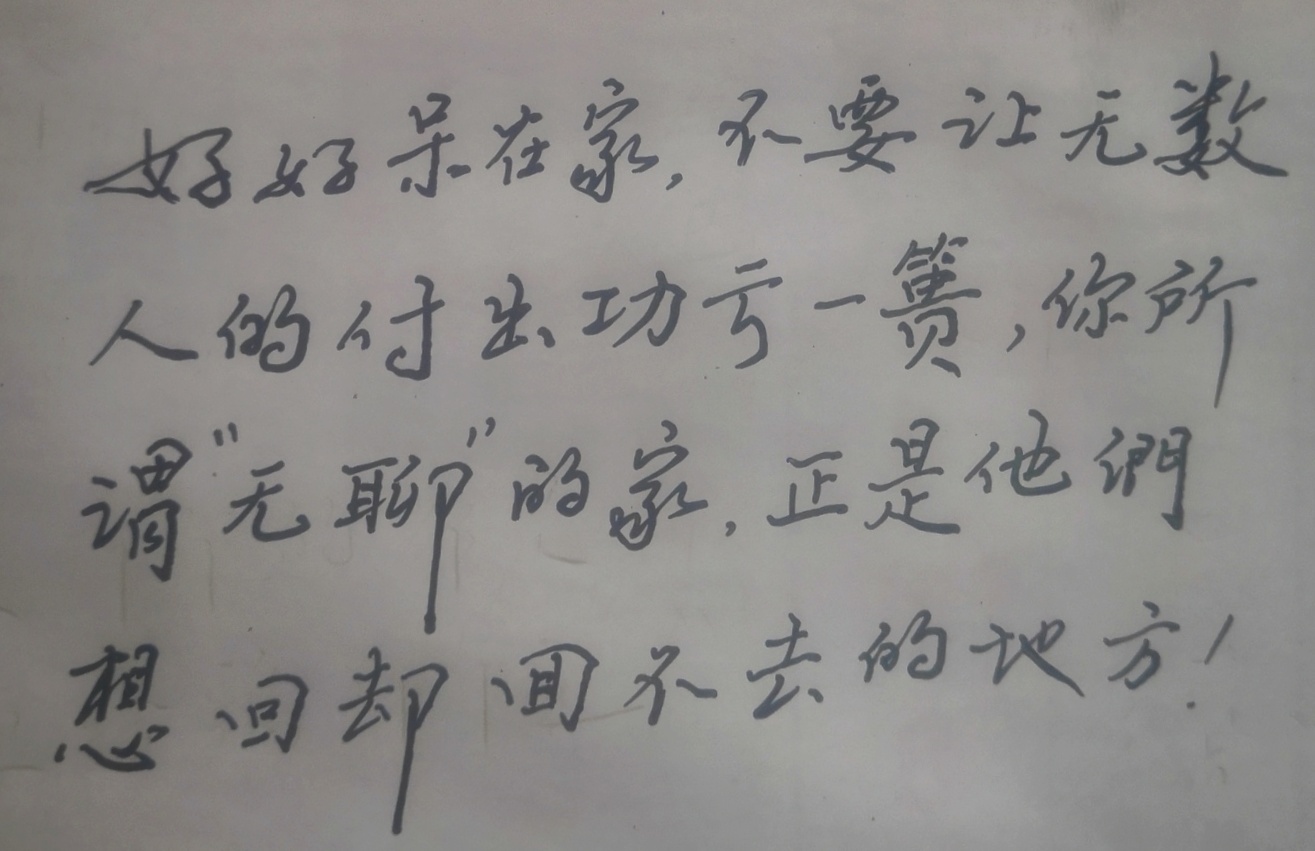 好好呆在家,不要让无数
人的付出功亏一篑,你所
谓"无聊"的家,正是他們
想回却回不去的地方!